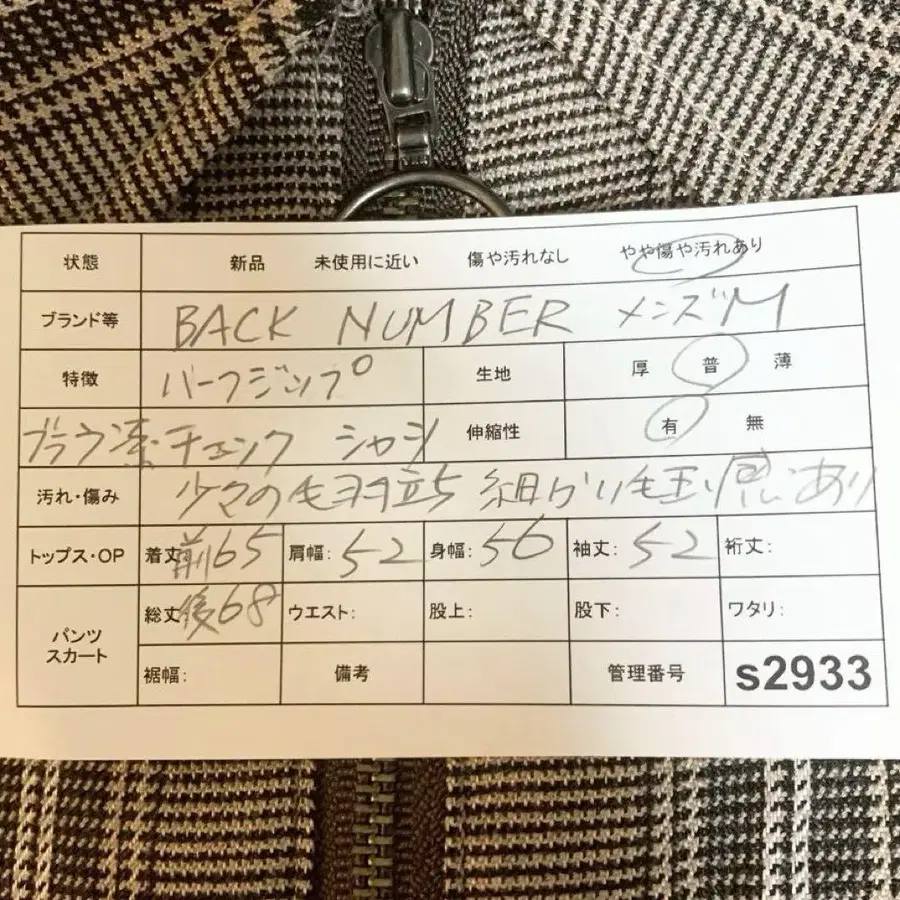 状態 新品 未使用に近い 傷や汚れなし やや傷や汚れあり
ブランド等 BACK NUMBER メンズM
特徴 ハーフジップ 生地 厚 普 薄
ブラウン系チェック シャツ 伸縮性 有 無
汚れ・傷み 少々の毛羽立ち 細かい毛玉 あり
トップス・OP 着丈 前65 肩幅: 52 身幅: 56 袖丈: 52 裄丈:
パンツ スカート 総丈 後68 ウエスト: 股上: 股下: ワタリ:
裾幅: 備考 管理番号 s2933